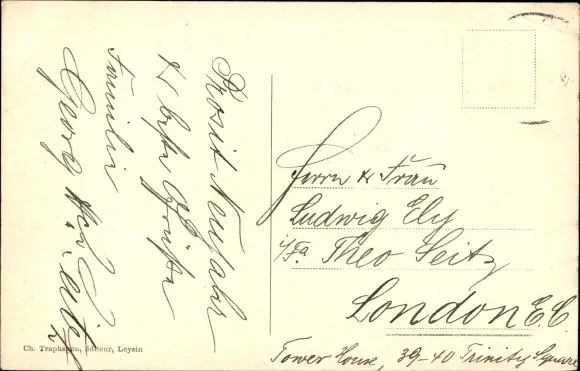 Prosit Neujahr
& beste Grüße
Familie
Georg
Herrn & Frau
Ludwig Ely
i/Fa. Theo Seitz
London E.C.
Tower House, 39-40 Trinity Square
Ch. Traphagen, éditeur, Leysin